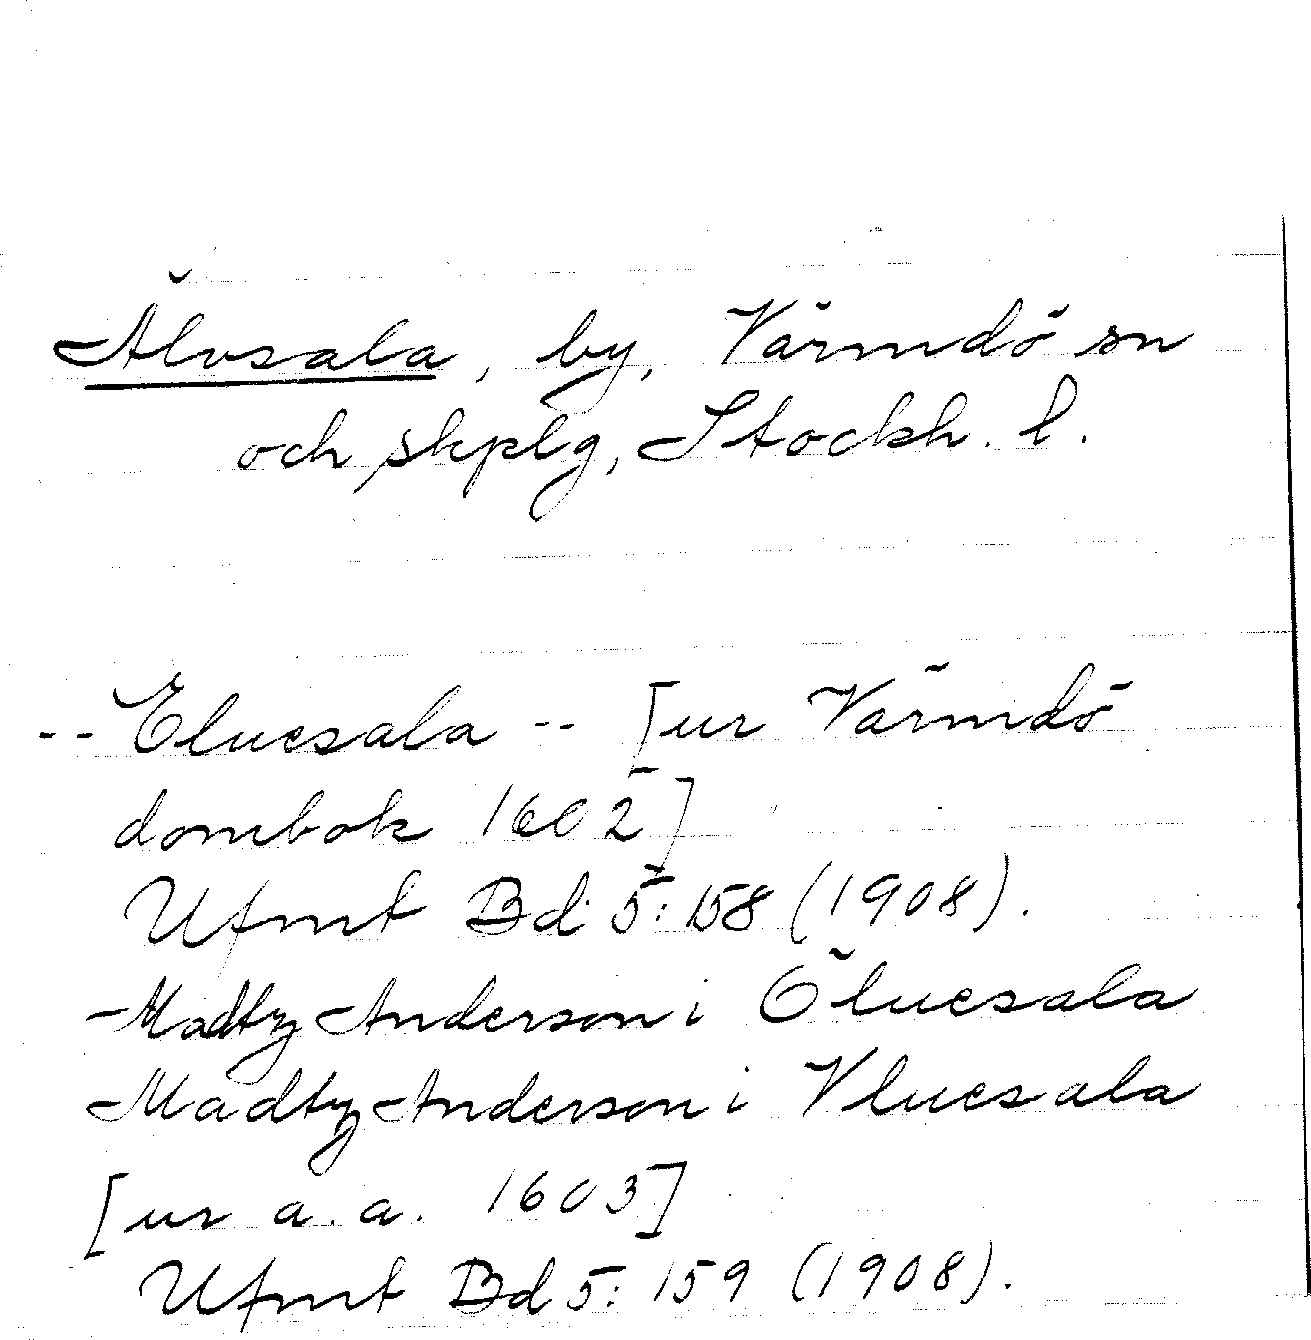 Älvsala, by, Värmdö sn
och skplg, Stockh. l.
-- Eluesala -- [ur Värmdö
dombok 1602]
Ufmt Bd 5:158 (1908).
Madtz Anderson i Öluesala
Madtz Anderson i Vluesala
[ur a.a. 1603]
Ufmt Bd 5:159 (1908).